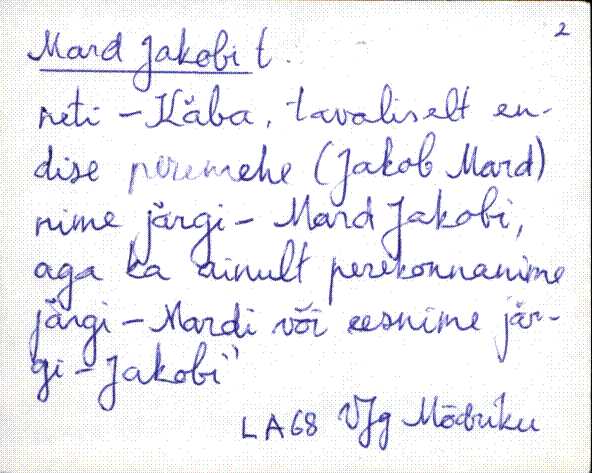 2
Mard Jakobi t.
neti - Kába, tavaliselt en-
dise peremehe (Jakob Mard)
nime järgi - Mard Jakobi,
aga ka ainult perekonnanime
järgi - Mardi või eesnime jär-
gi - Jakobi"
LA68 VJg Mõdriku